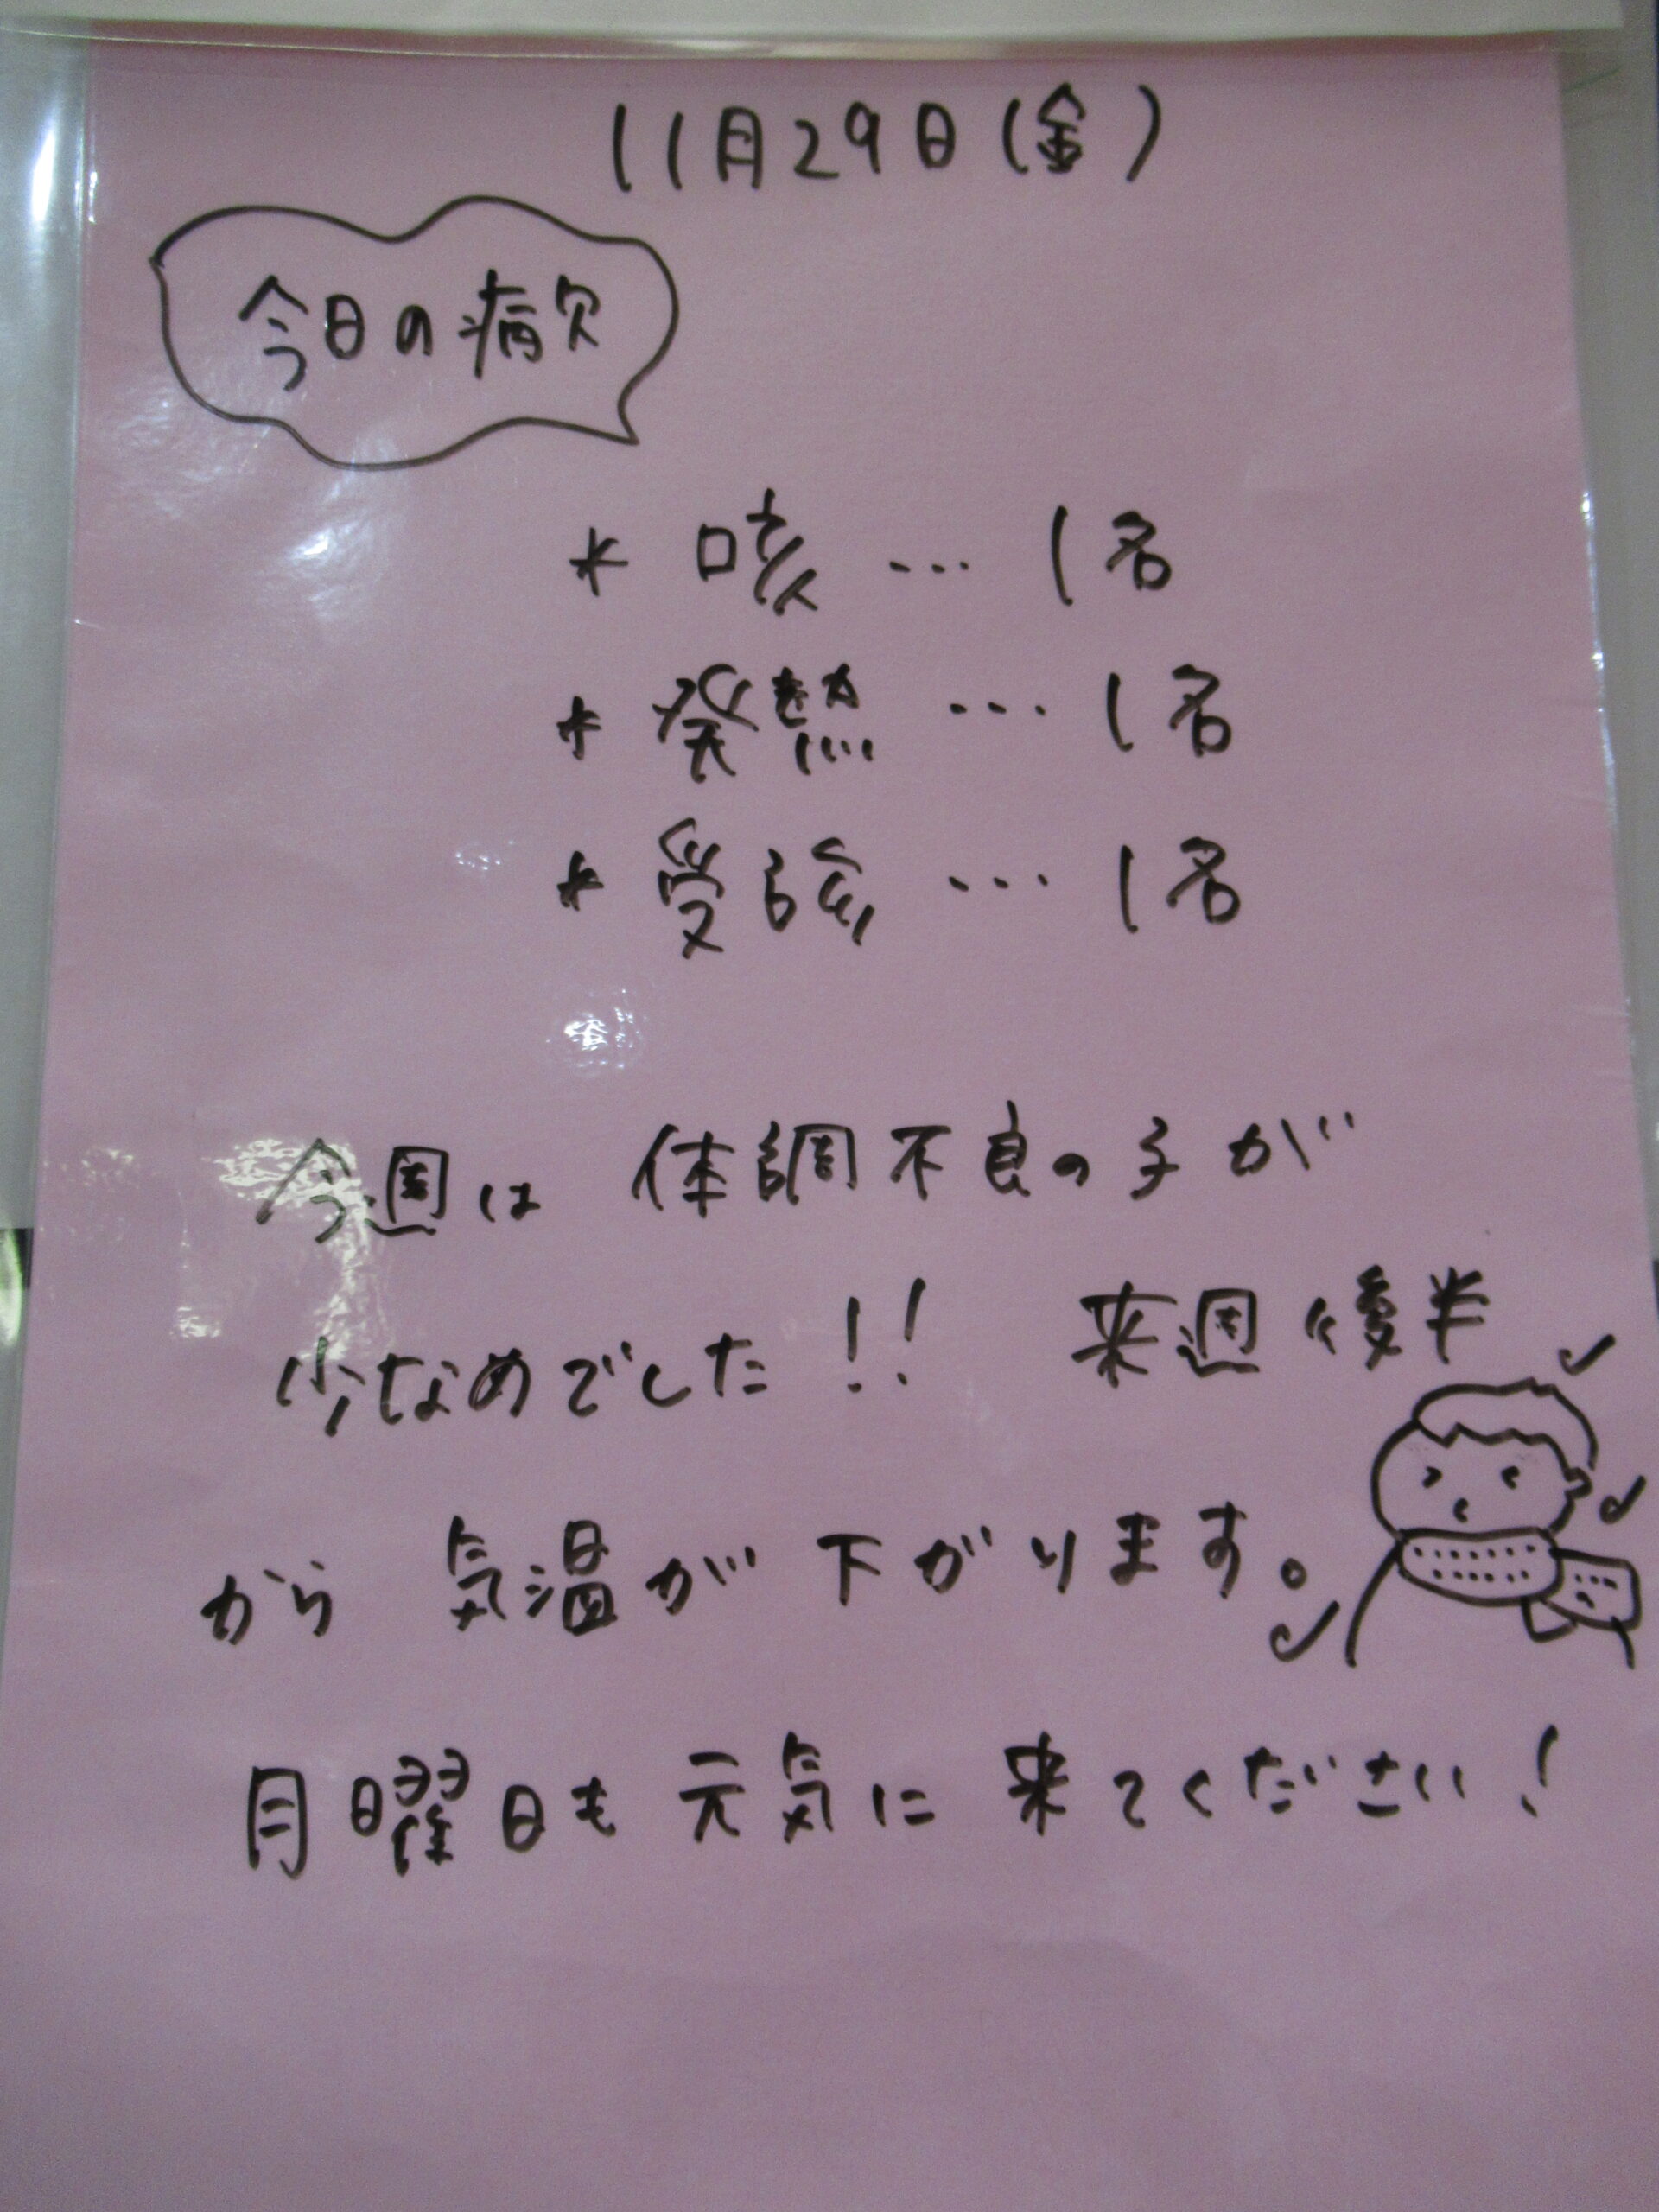 11月29日(金)
今日の病欠
* 咳 … 1名
* 発熱 … 1名
* 受診 … 1名
今週は 体調不良の子が
少なめでした!! 来週後半
から 気温が下がります。
月曜日も元気に来てください!